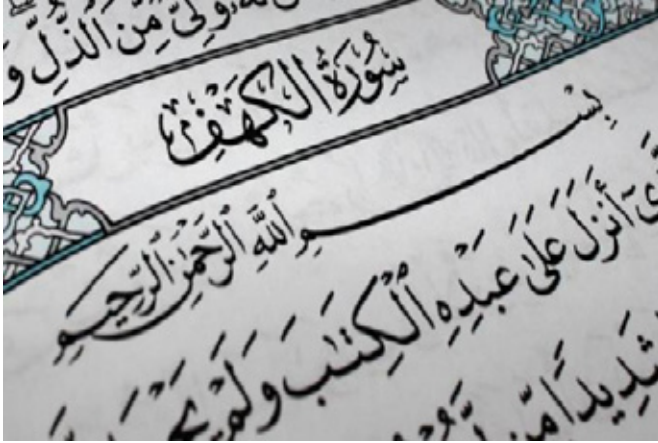 وَلِىٌّ مِّنَ ٱلذُّلِّ وَ
سُورَةُ الكَهْفِ
بِسْمِ ٱللَّهِ ٱلرَّحْمَٰنِ ٱلرَّحِيمِ
أَنزَلَ عَلَىٰ عَبْدِهِ ٱلْكِتَٰبَ وَلَمْ يَجْ
شَدِيدًا مِّن